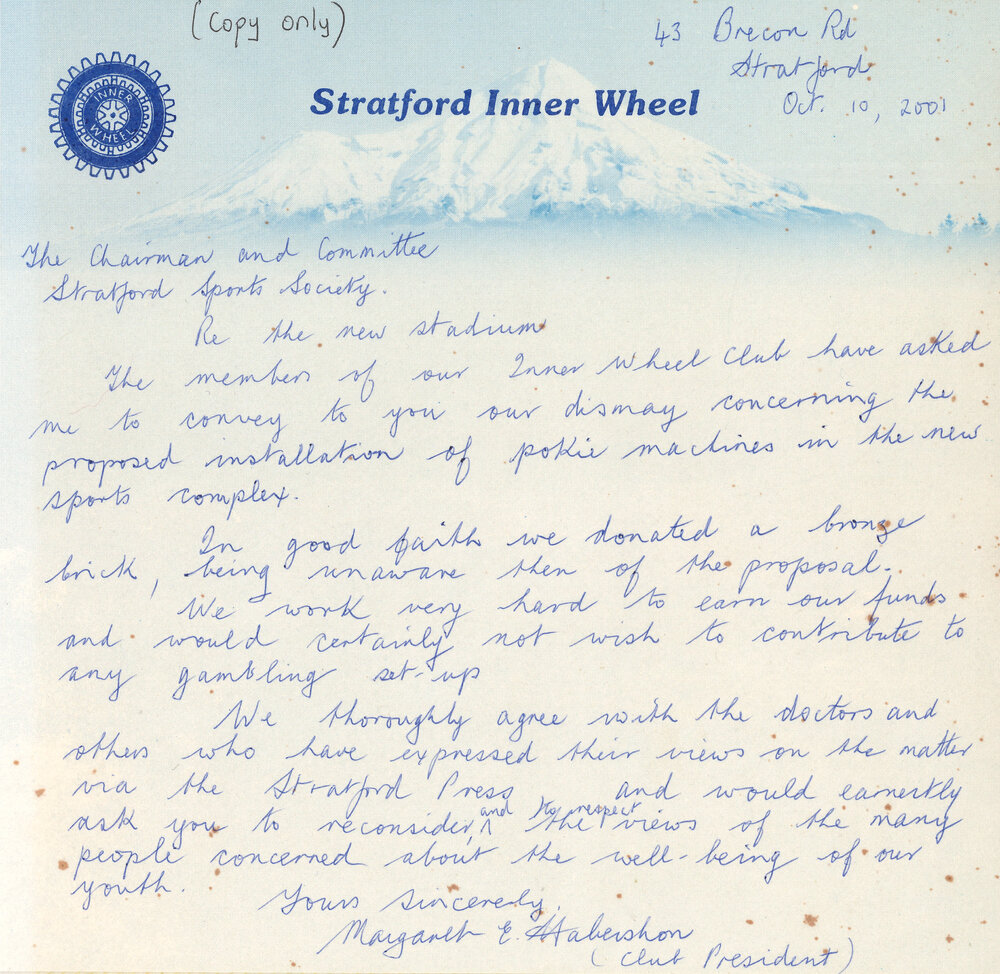 (Copy only)
43 Brecon Rd
Stratford
Oct. 10, 2001
INNER
WHEEL
Stratford Inner Wheel
The Chairman and Committee
Stratford Sports Society.
Re the new stadium
The members of our Inner Wheel Club have asked
me to convey to you our dismay concerning the
proposed installation of pokie machines in the new
sports complex.
In good faith we donated a bronze
brick, being unaware then of the proposal.
We work very hard to earn our funds
and would certainly not wish to contribute to
any gambling set-up
We thoroughly agree with the doctors and
others who have expressed their views on the matter
via the Stratford Press and would earnestly
ask you to reconsider, and to respect the views of the many
people concerned about the well-being of our
youth.
Yours sincerely,
Margaret E. Habershon
(Club President)